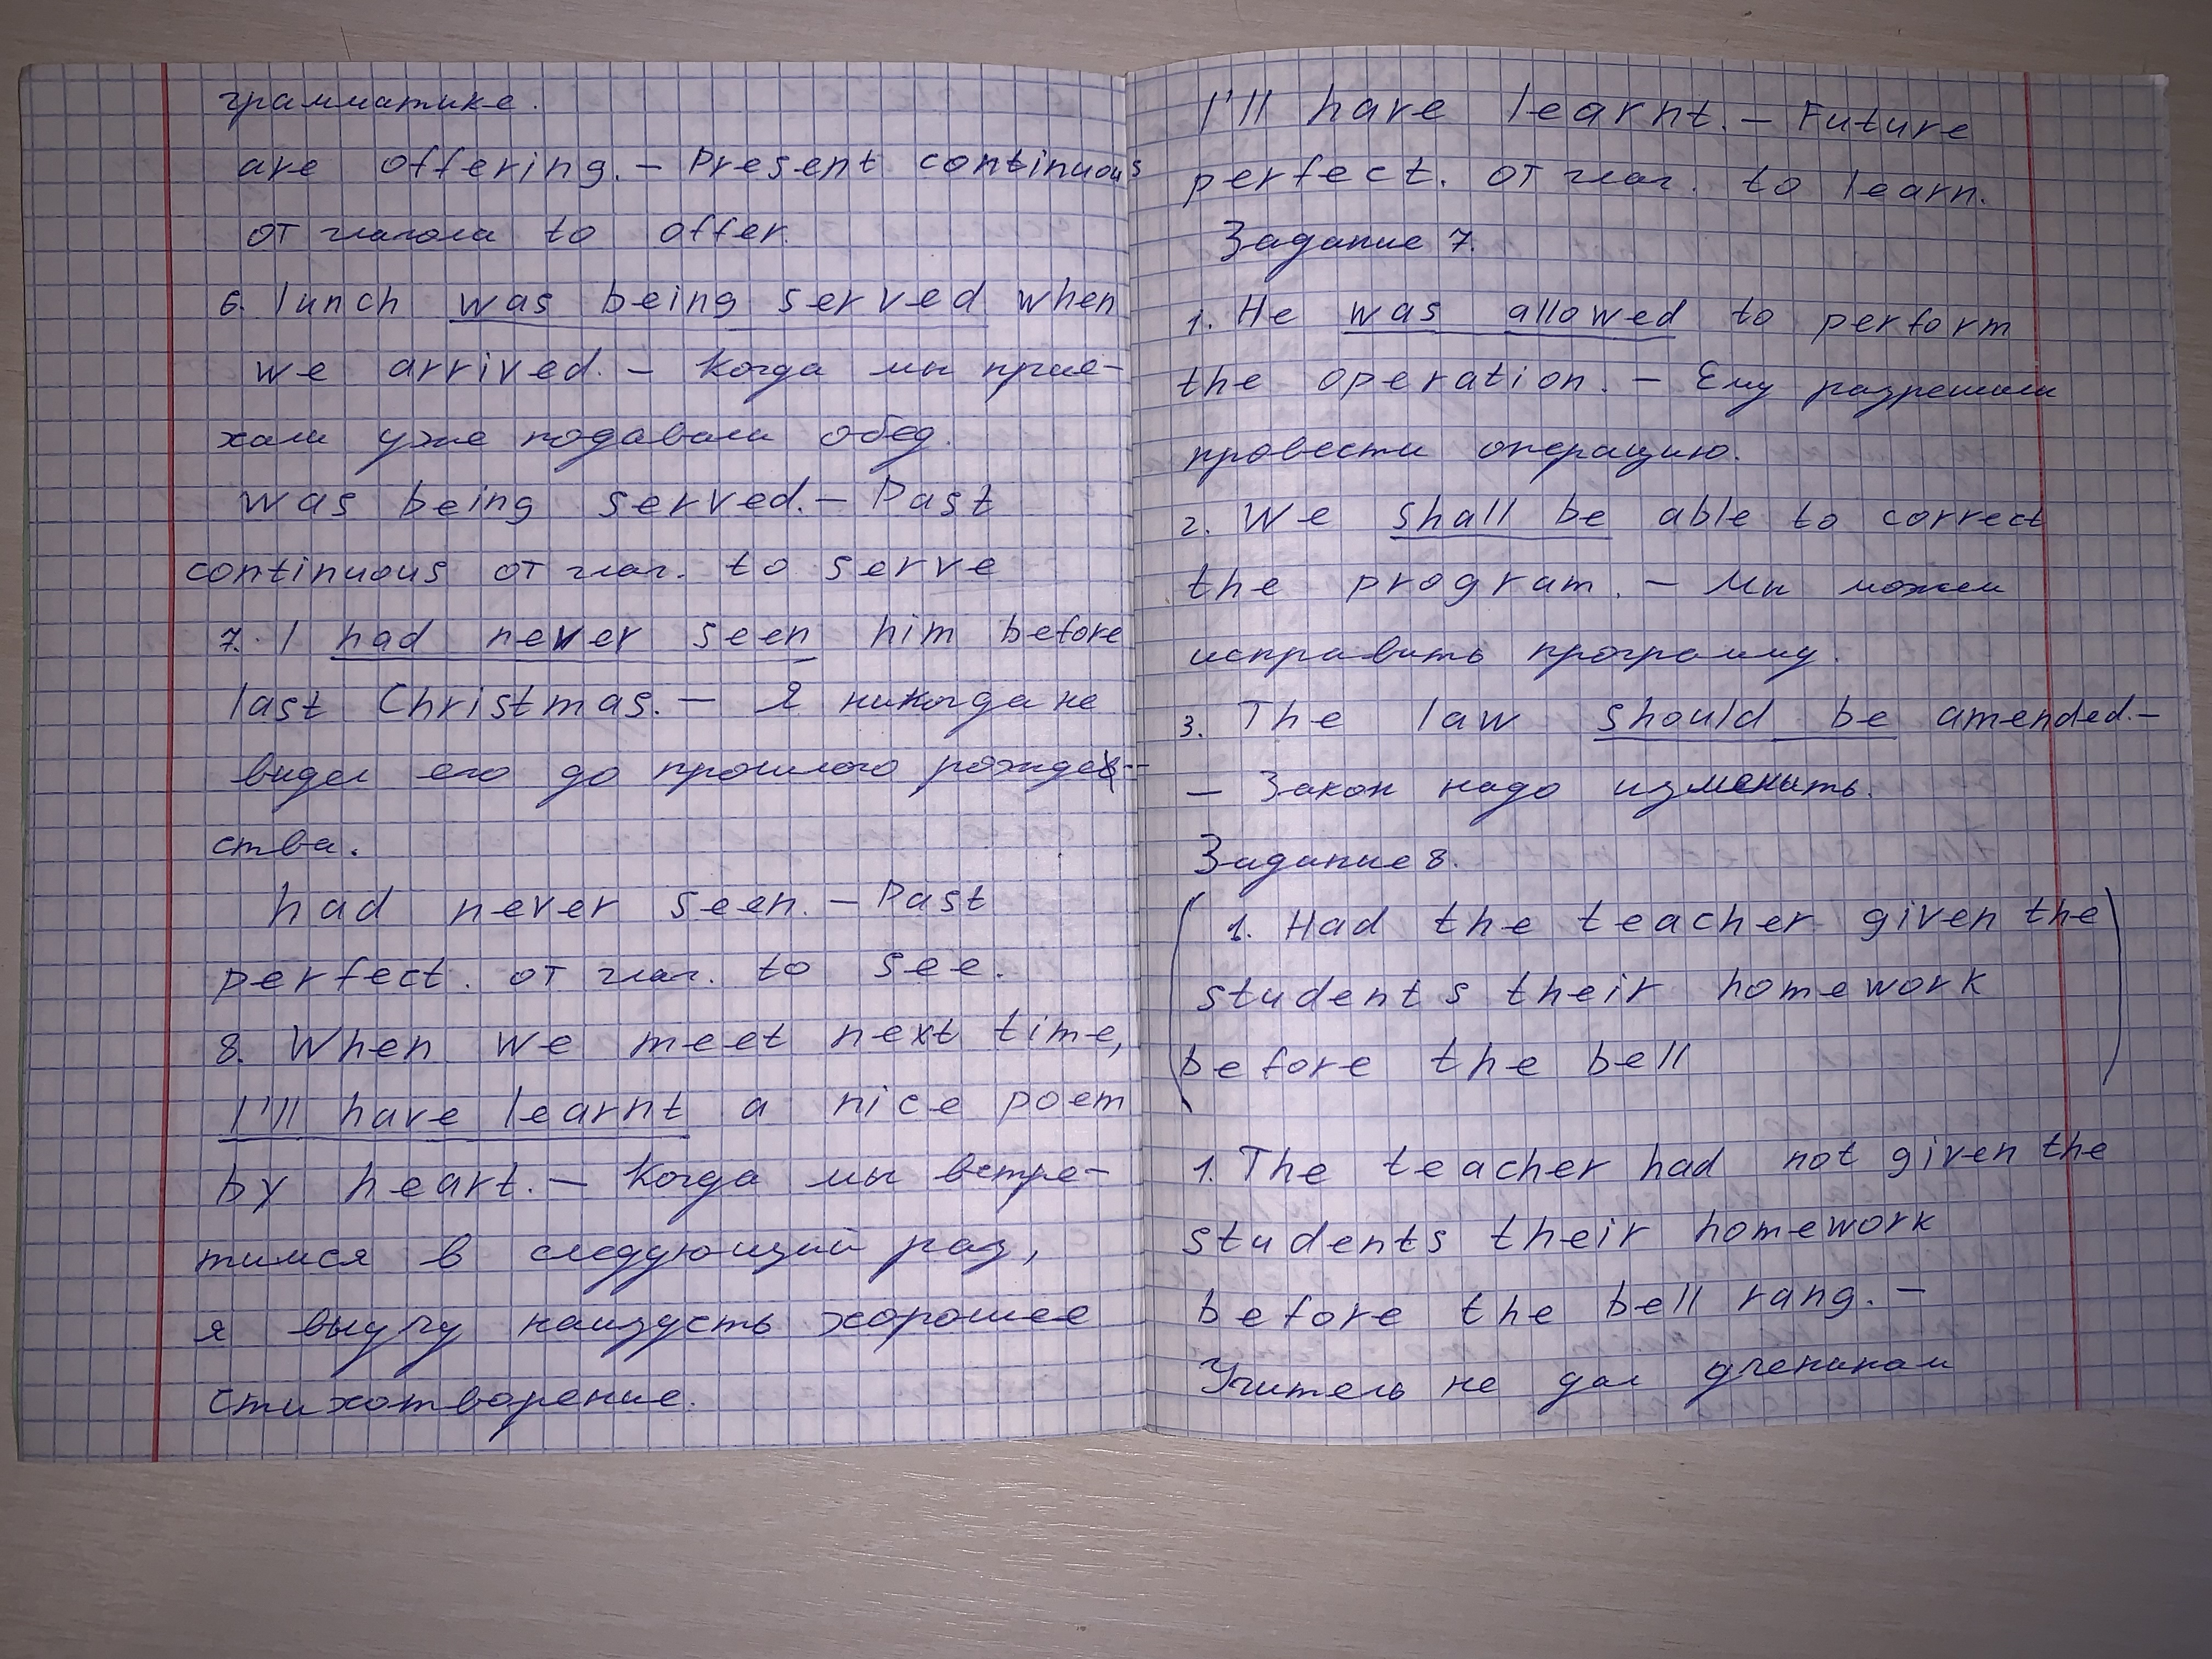 грамматике.
are offering. – Present continuous
от глагола to offer.
6. lunch was being served when
we arrived. – Когда мы прие-
хали уже подавали обед.
was being served. – Past
continuous от глаг. to serve
7. I had never seen him before
last Christmas. – Я никогда не
видел его до прошлого рождес-
ства.
had never seen. – Past
perfect. от глаг. to see.
8. When we meet next time,
I'll have learnt a nice poem
by heart. – Когда мы встре-
тимся в следующий раз,
я выучу наизусть хорошее
стихотворение.
I'll have learnt. – Future
perfect. от глаг. to learn.
Задание 7.
1. He was allowed to perform
the operation. – Ему разрешили
провести операцию.
2. We shall be able to correct
the program. – Мы можем
исправить программу.
3. The law should be amended. –
– Закон надо изменить.
Задание 8.
1. Had the teacher given the
students their homework
before the bell
1. The teacher had not given the
students their homework
before the bell rang. –
Учитель не дал ученикам